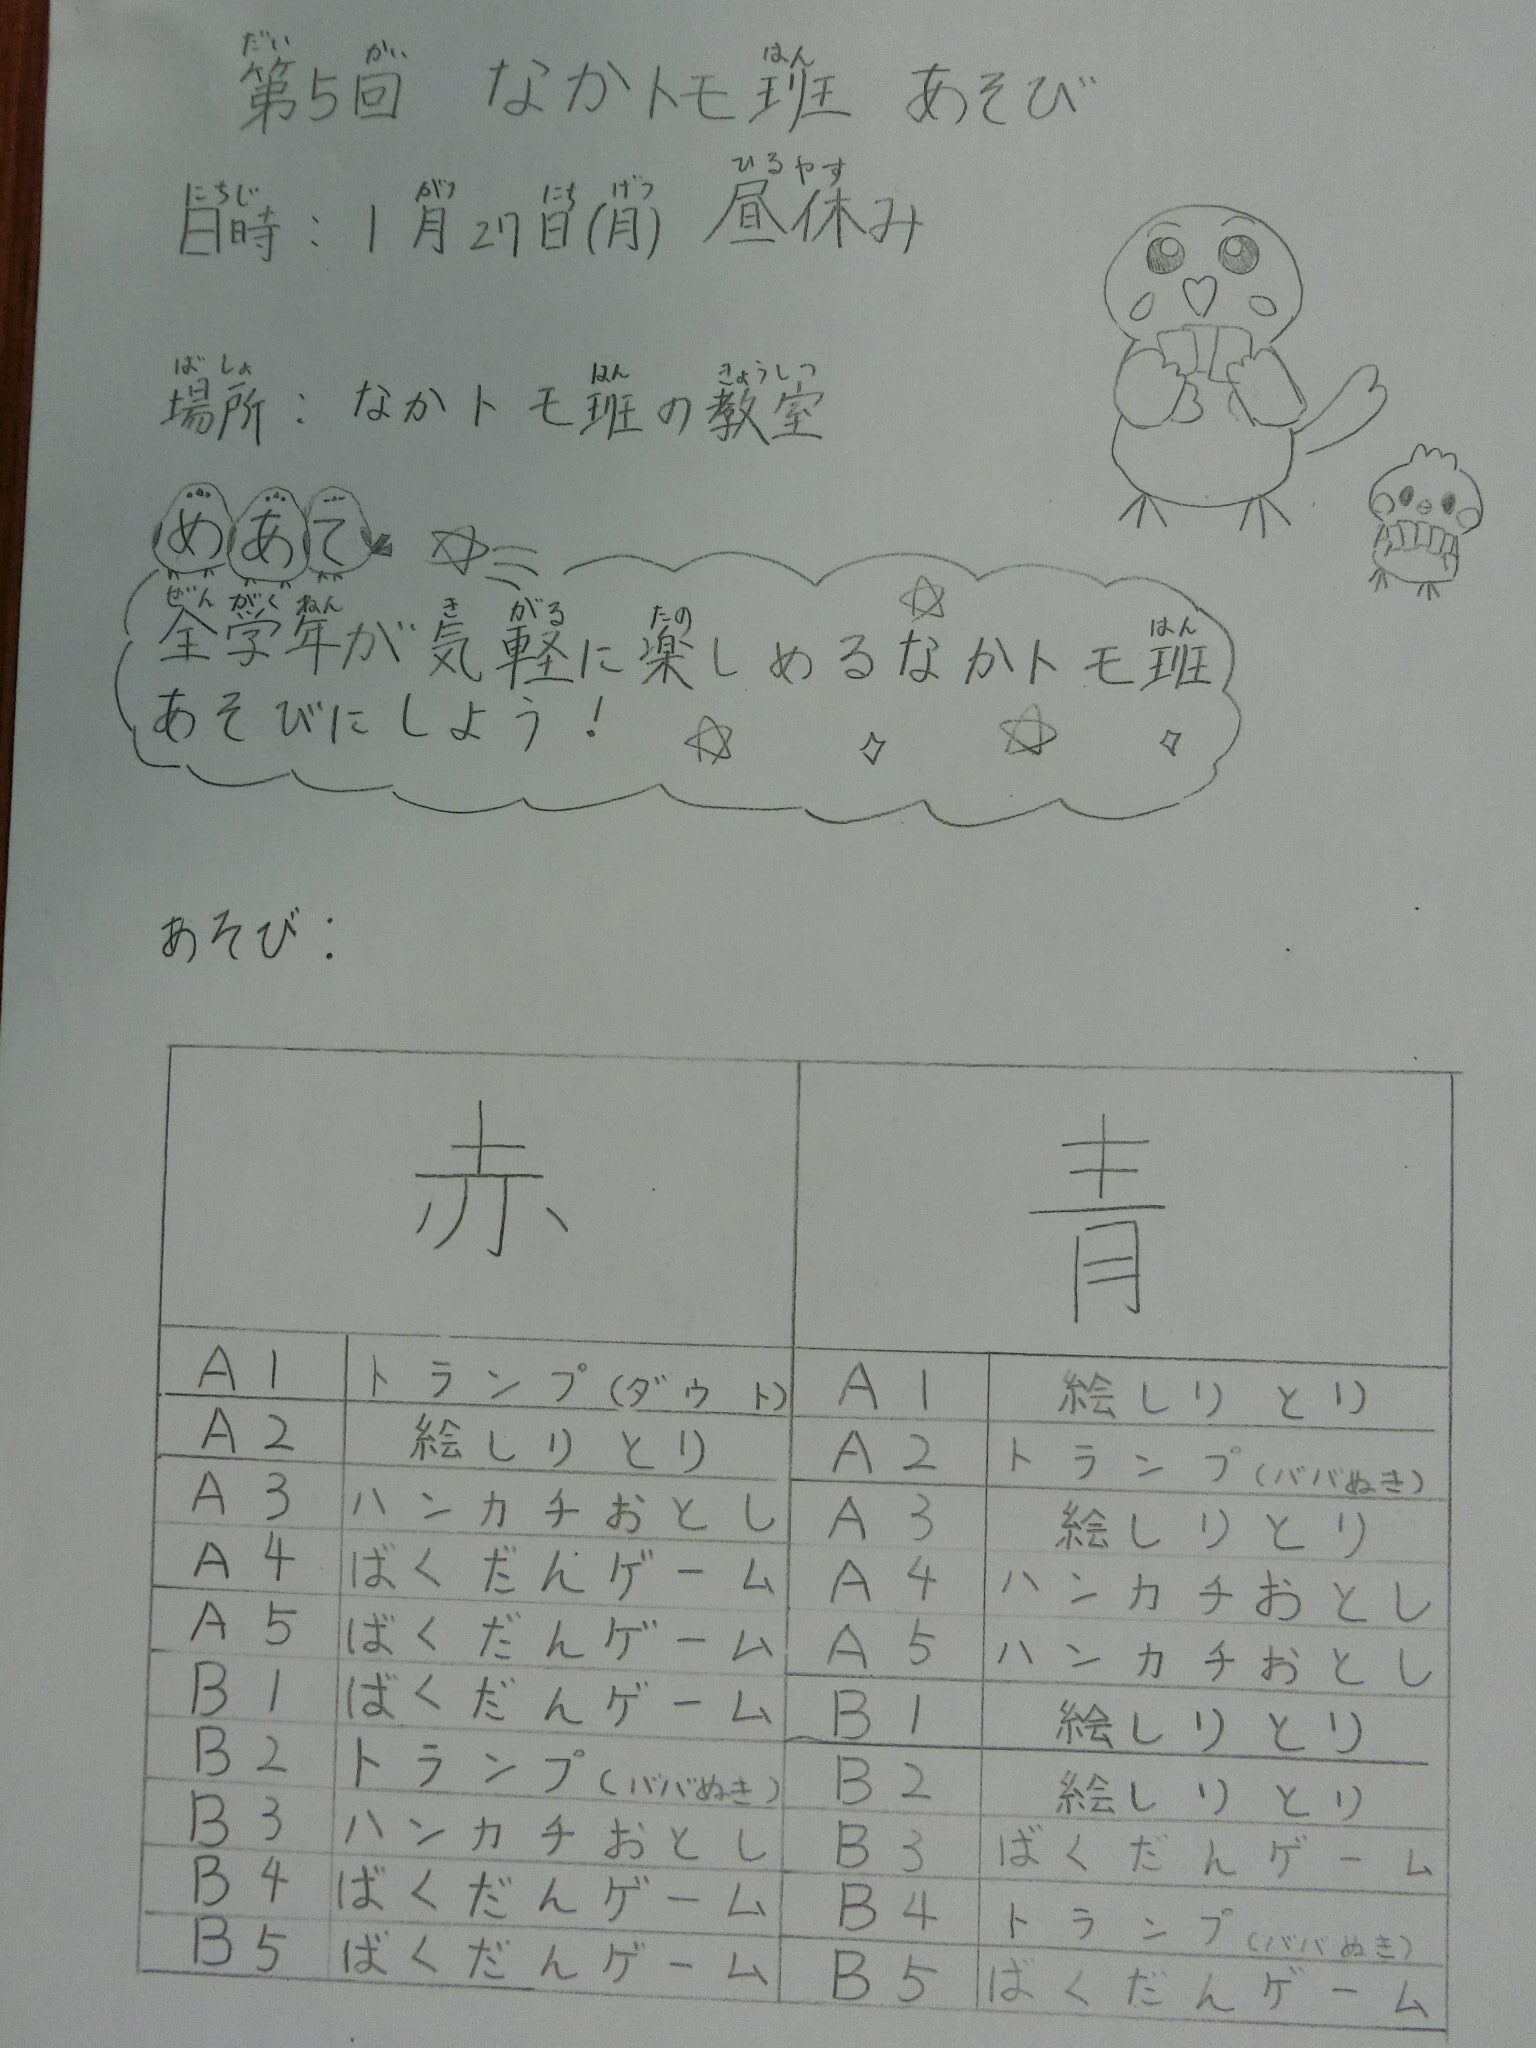 だい かい はん
第5回 なかトモ班 あそび
にちじ がつ にち げつ ひるやす
日時：1月27日(月) 昼休み
ばしょ はん きょうしつ
場所：なかトモ班の教室
めあて
ぜんがくねん き がる たの はん
全学年が気軽に楽しめるなかトモ班
あそびにしよう！
あそび：
赤 青
A1 トランプ(ダウト) A1 絵しりとり
A2 絵しりとり A2 トランプ(ババぬき)
A3 ハンカチおとし A3 絵しりとり
A4 ばくだんゲーム A4 ハンカチおとし
A5 ばくだんゲーム A5 ハンカチおとし
B1 ばくだんゲーム B1 絵しりとり
B2 トランプ(ババぬき) B2 絵しりとり
B3 ハンカチおとし B3 ばくだんゲーム
B4 ばくだんゲーム B4 トランプ(ババぬき)
B5 ばくだんゲーム B5 ばくだんゲーム